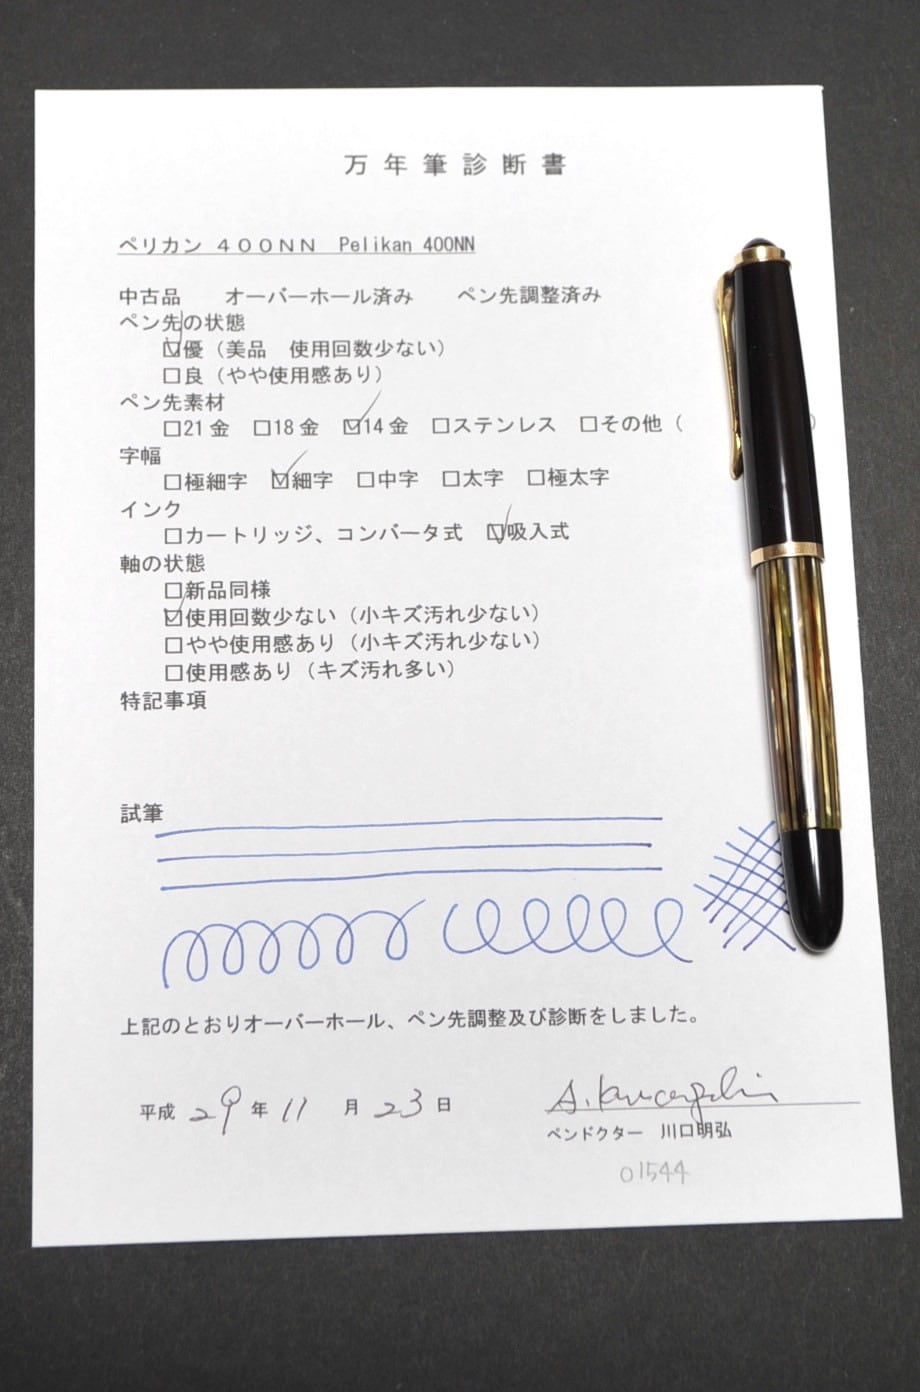 万年筆診断書
ペリカン ４００ＮＮ Pelikan 400NN
中古品 オーバーホール済み ペン先調整済み
ペン先の状態
☑優（美品 使用回数少ない）
□良（やや使用感あり）
ペン先素材
□21金 □18金 ☑14金 □ステンレス □その他（ ）
字幅
□極細字 ☑細字 □中字 □太字 □極太字
インク
□カートリッジ、コンバータ式 ☑吸入式
軸の状態
□新品同様
☑使用回数少ない（小キズ汚れ少ない）
□やや使用感あり（小キズ汚れ少ない）
□使用感あり（キズ汚れ多い）
特記事項
試筆
上記のとおりオーバーホール、ペン先調整及び診断をしました。
平成 29 年 11 月 23 日
ペンドクター 川口明弘
01544